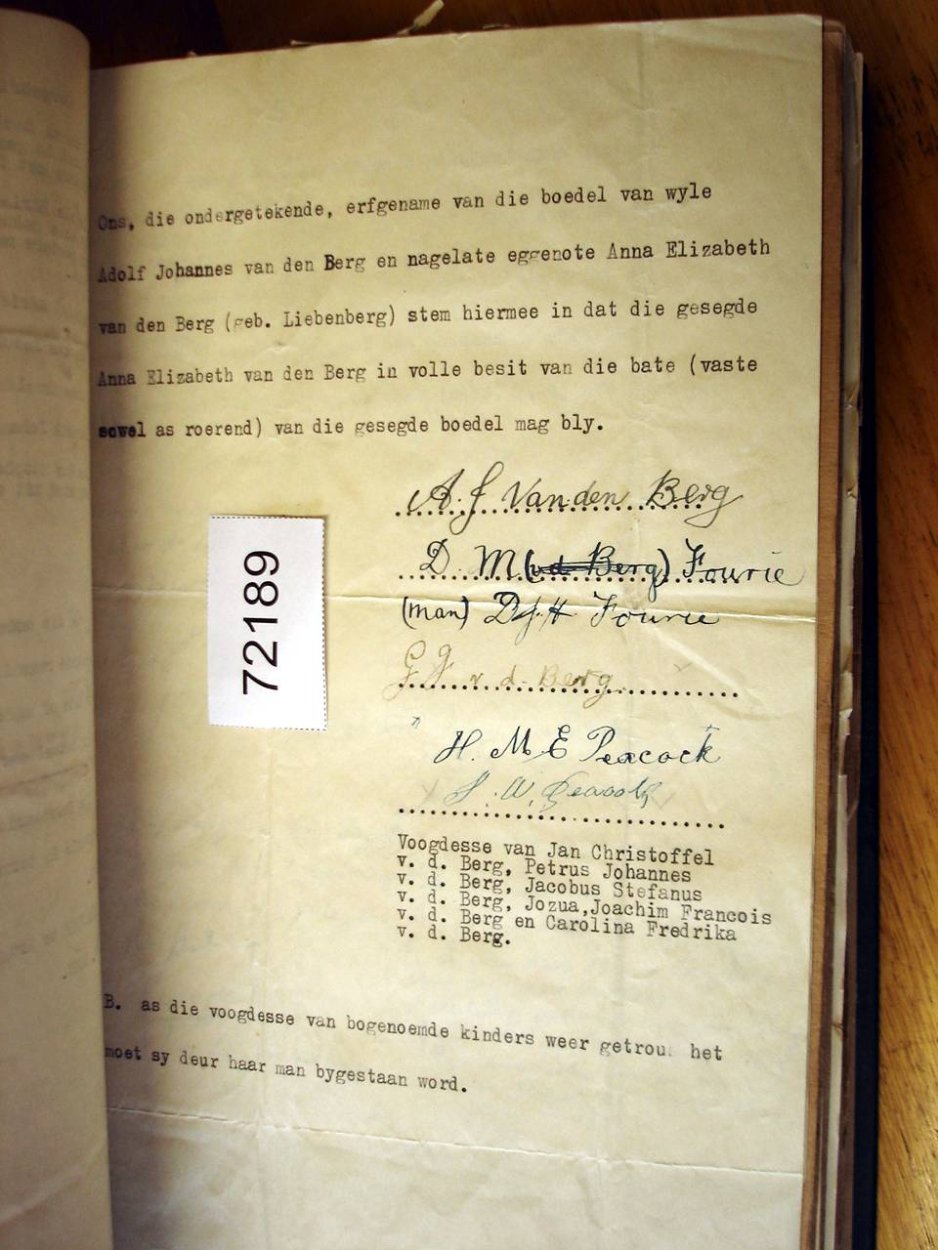 Ons, die ondergetekende, erfgename van die boedel van wyle
Adolf Johannes van den Berg en nagelate eggenote Anna Elizabeth
van den Berg (geb. Liebenberg) stem hiermee in dat die gesegde
Anna Elizabeth van den Berg in volle besit van die bate (vaste
sowel as roerend) van die gesegde boedel mag bly.
A. J Van den Berg
D. M (v d Berg) Fourie
(man) D J H Fourie
72189
v. d. Berg
" H. M E Peacock
J. W. Peacock
Voogdesse van Jan Christoffel
v. d. Berg, Petrus Johannes
v. d. Berg, Jacobus Stefanus
v. d. Berg, Jozua,Joachim Francois
v. d. Berg en Carolina Fredrika
v. d. Berg.
B. as die voogdesse van bogenoemde kinders weer getrou het
moet sy deur haar man bygestaan word.